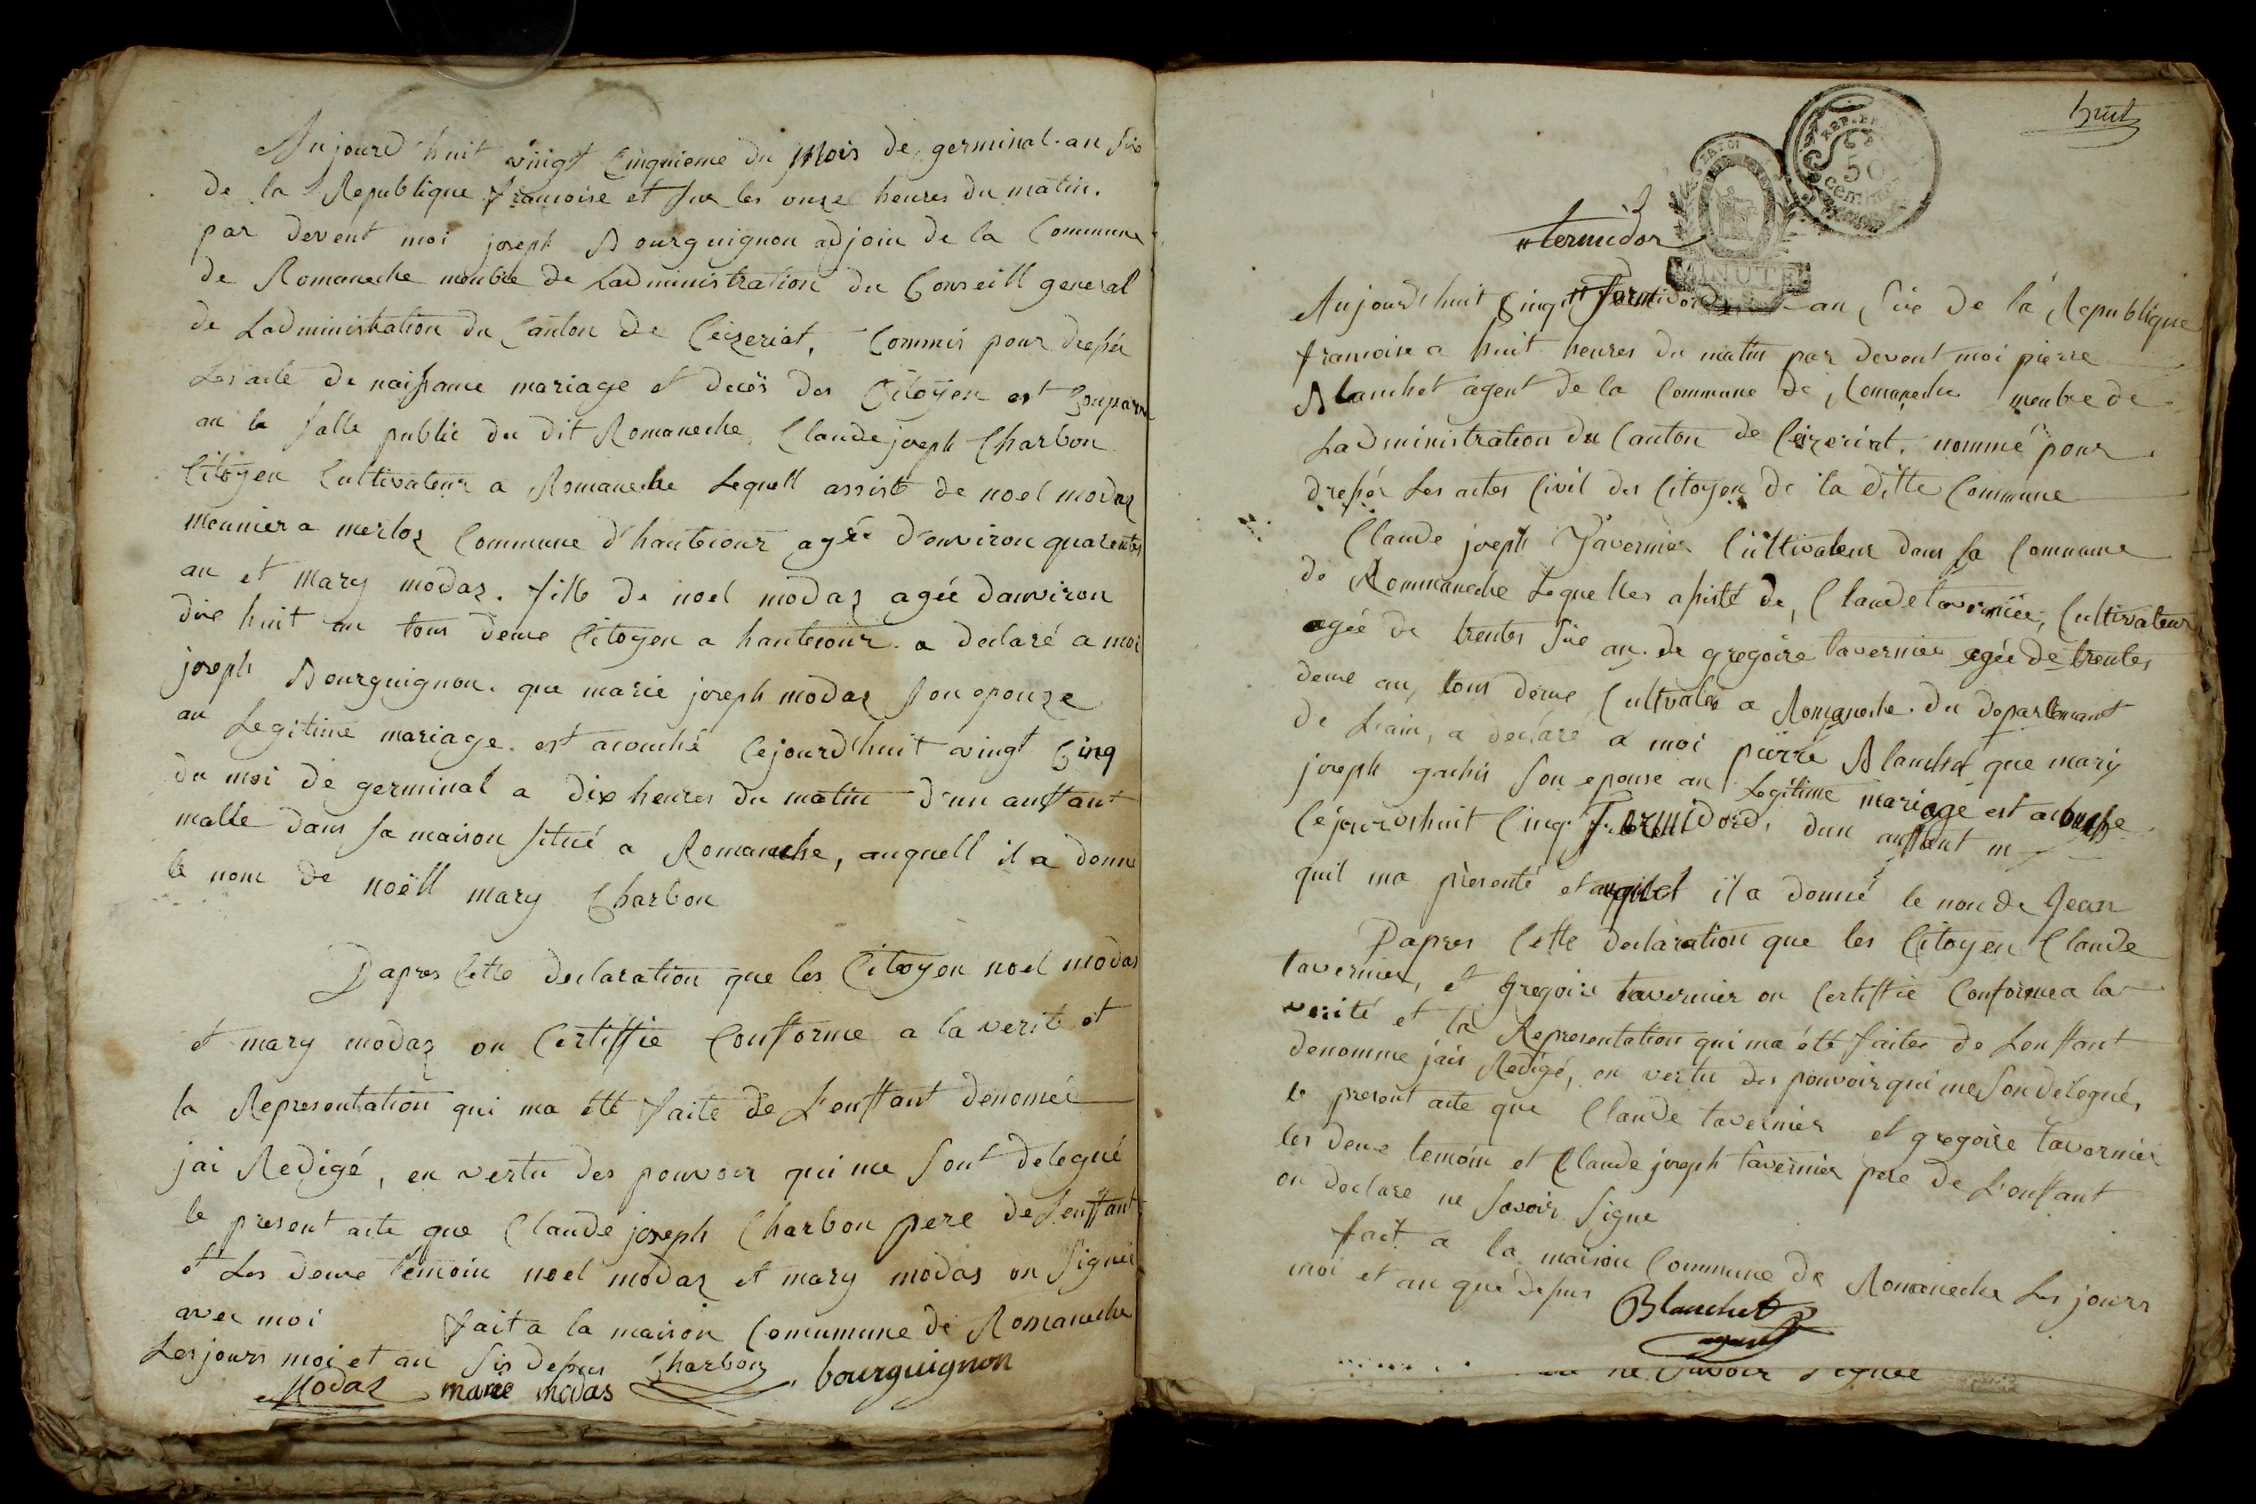 Aujourd'huit vingt Cinquieme du Mois de germinal an six
de la Republique francoise et sur les onze heures du matin.
par devent moi joseph Bourguignon adjoin de la Commune
de Romaneche menbre de Ladministration du Conseill general
de Ladministration du Canton de Ceizeriat, Commis pour dressér
Les acte de naissance mariage et decès des Citoyen est Conparu
an la salle public du dit Romaneche, Claude joseph Charbon
Citoyen Cultivateur a Romaneche Lequell assisté de noel modaz
meunier a merloz Commune d'hautecour agée d'environ quarentes
an et mary modaz. fille de noel modaz agée danviron
dix huit an tous deux Citoyen a hautecour. a declaré a moi
joseph Bourguignon. que marie joseph modaz son epouze
an Legitime mariage. est acouché Cejourd'huit vingt Cinq
du moi de germinal a dix heures du matin d'un anffant
malle dans sa maison situé a Romaneche, auquell il a donne
le nom de noëll mary Charbon
Dapres Cette declaration que les Citoyen noel modas
et mary modaz on Certiffie Conforme a la verité et
la Representation qui ma été faite de L'enffant dénomeé
jai Redigé, en vertu des pouvoir qui me sont delegué
le present acte que Claude joseph Charbon pere de Lenffant
et Les deux temoin noel modaz et mary modas on Signés
avec moi fait a la maison Comumune de Romaneche
Les jours moi et an six depus Charbon bourguignon
Modaz marie modas
huit
REP. FRA
50
centimes
MINUTE
termidor
Aujourd'huit Cinq termidor an six de la Republique
francoise a huit heures du matin par devent moi pierre
Blanchet agent de la Commune de Romaneche menbre de
Ladministration du Canton de Ceizeriat. nommé pour
dressér Les actes Civil des Citoyen de la ditte Commune
Claude joseph Tavernier Cultivateur dans sa Commune
de Rommaneche Lequelles assisté de, Claude tavernier, Cultivateur
agée de trentes six an. de gregoire tavernier agée de trentes
deux an, tous deux Cultivater a Romaneche. du departemant
de Lain, a declaré a moi pierre Blanchet que mary
joseph gachis son epouse an Legitime mariage est acouche
Cejourdhuit Cinq Termidord, dun anffant m
quil ma présenté et auquel il a donné le nom de Jean
Dapres Cette declaration que les Citoyen Claude
tavernier, et gregoire tavernier on Certiffie Conforme a la
verité et la Representation qui ma été faitee de Lenffant
denomme jais Redigé, en vertu des pouvoir qui me son delegué,
le present acte que Claude tavernier et gregoire tavernier
les deux temoin et Claude joseph tavernier pere de L'enffant
on declare ne savoir signe
fait a la maison Commune de Romaneche Les jours
moi et an que depus Blanchet
agent
ne savoir signee